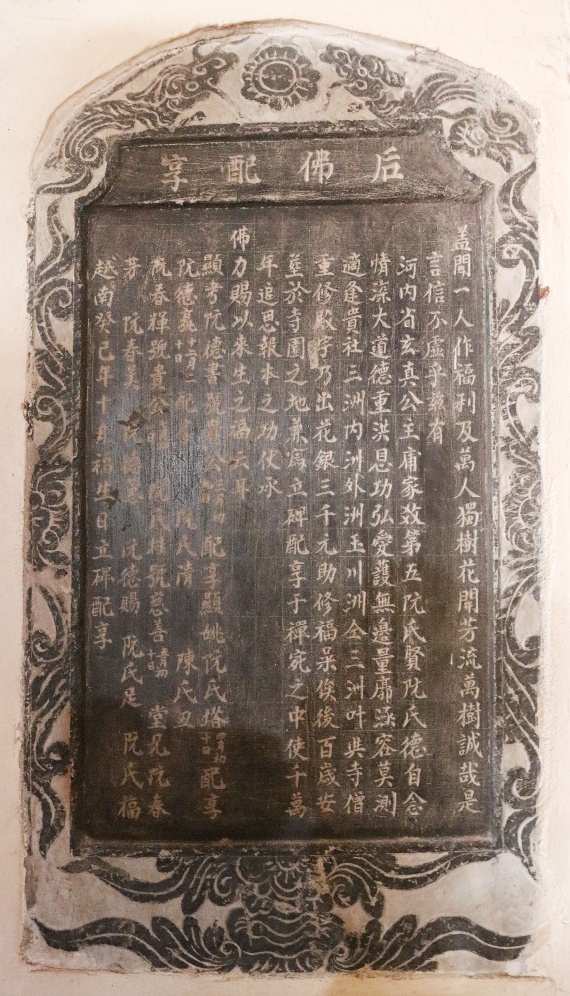 后佛配享
盖聞一人作福利及萬人獨樹花開芳流萬樹誠哉是
言信不虛乎茲有
河内省玄真公主庸家数第五阮氏賢阮氏德自念
情深大道德重洪恩功弘愛護無邊量廓涵容莫測
適逢貴社三洲内洲外洲玉川洲仝三洲叶與寺僧
重修殿宇乃出花銀三千元助修福果俟後百歲安
塋於寺圃之地兼爲立碑配享于禪宛之中使千萬
年追思報本之功仗承
佛力賜以來生之福云耳
顯考阮德書號 配享顯妣阮氏塔 配享
阮德嘉 配享 阮氏清 陳氏丑
阮春輝號貴公 阮氏桂號慈善 堂兄阮春
芳 阮春美 阮德賜 阮氏足 阮氏福
越南癸巳年十月福生日立碑配享